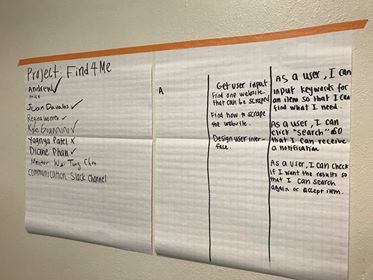 Project: Find4Me
Andrew ✓
Jason Davalos ✓
Yagnya Patel X
Dione Phan ✓
Mentor Wai Ting Chu
Communication: Slack Channel
A
Get user input
Find one website
that can be scraped
Find how to scrape
the website.
Design user inter-
face.
As a user, I can
input keywords for
an item so that I can
find what I need.
As a user, I can
click "Search" so
that I can receive
a notification
As a user, I can check
if I want the results so
that I can search
again or accept item.